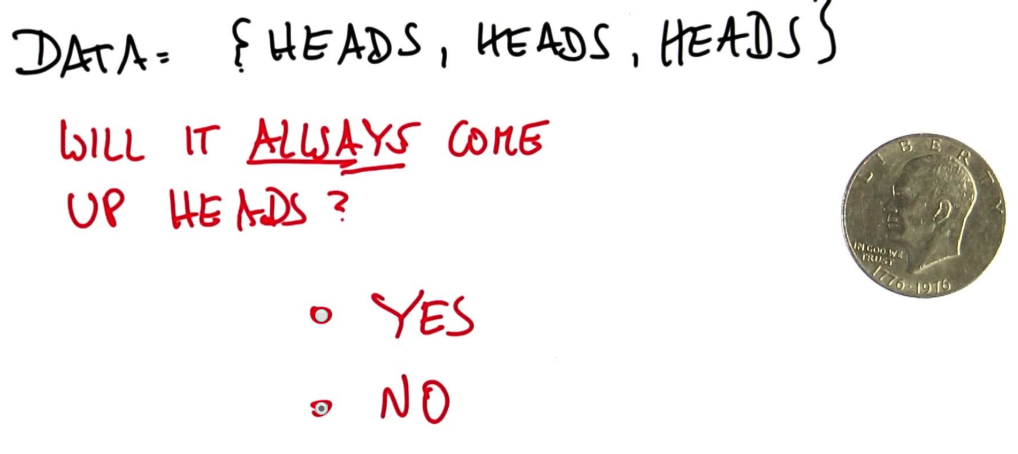 DATA= {HEADS, HEADS, HEADS}
WILL IT ALWAYS COME
UP HEADS?
YES
NO
LIBERTY
IN GOD WE
TRUST
1776·1976